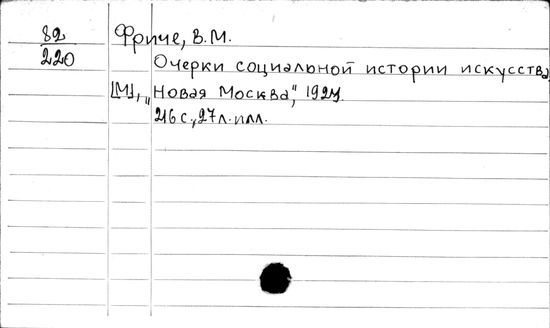 82
220
Фриче, В.М.
Очерки социальной истории искусства
[М], „Новая Москва", 1924.
216 с., 27 л. илл.